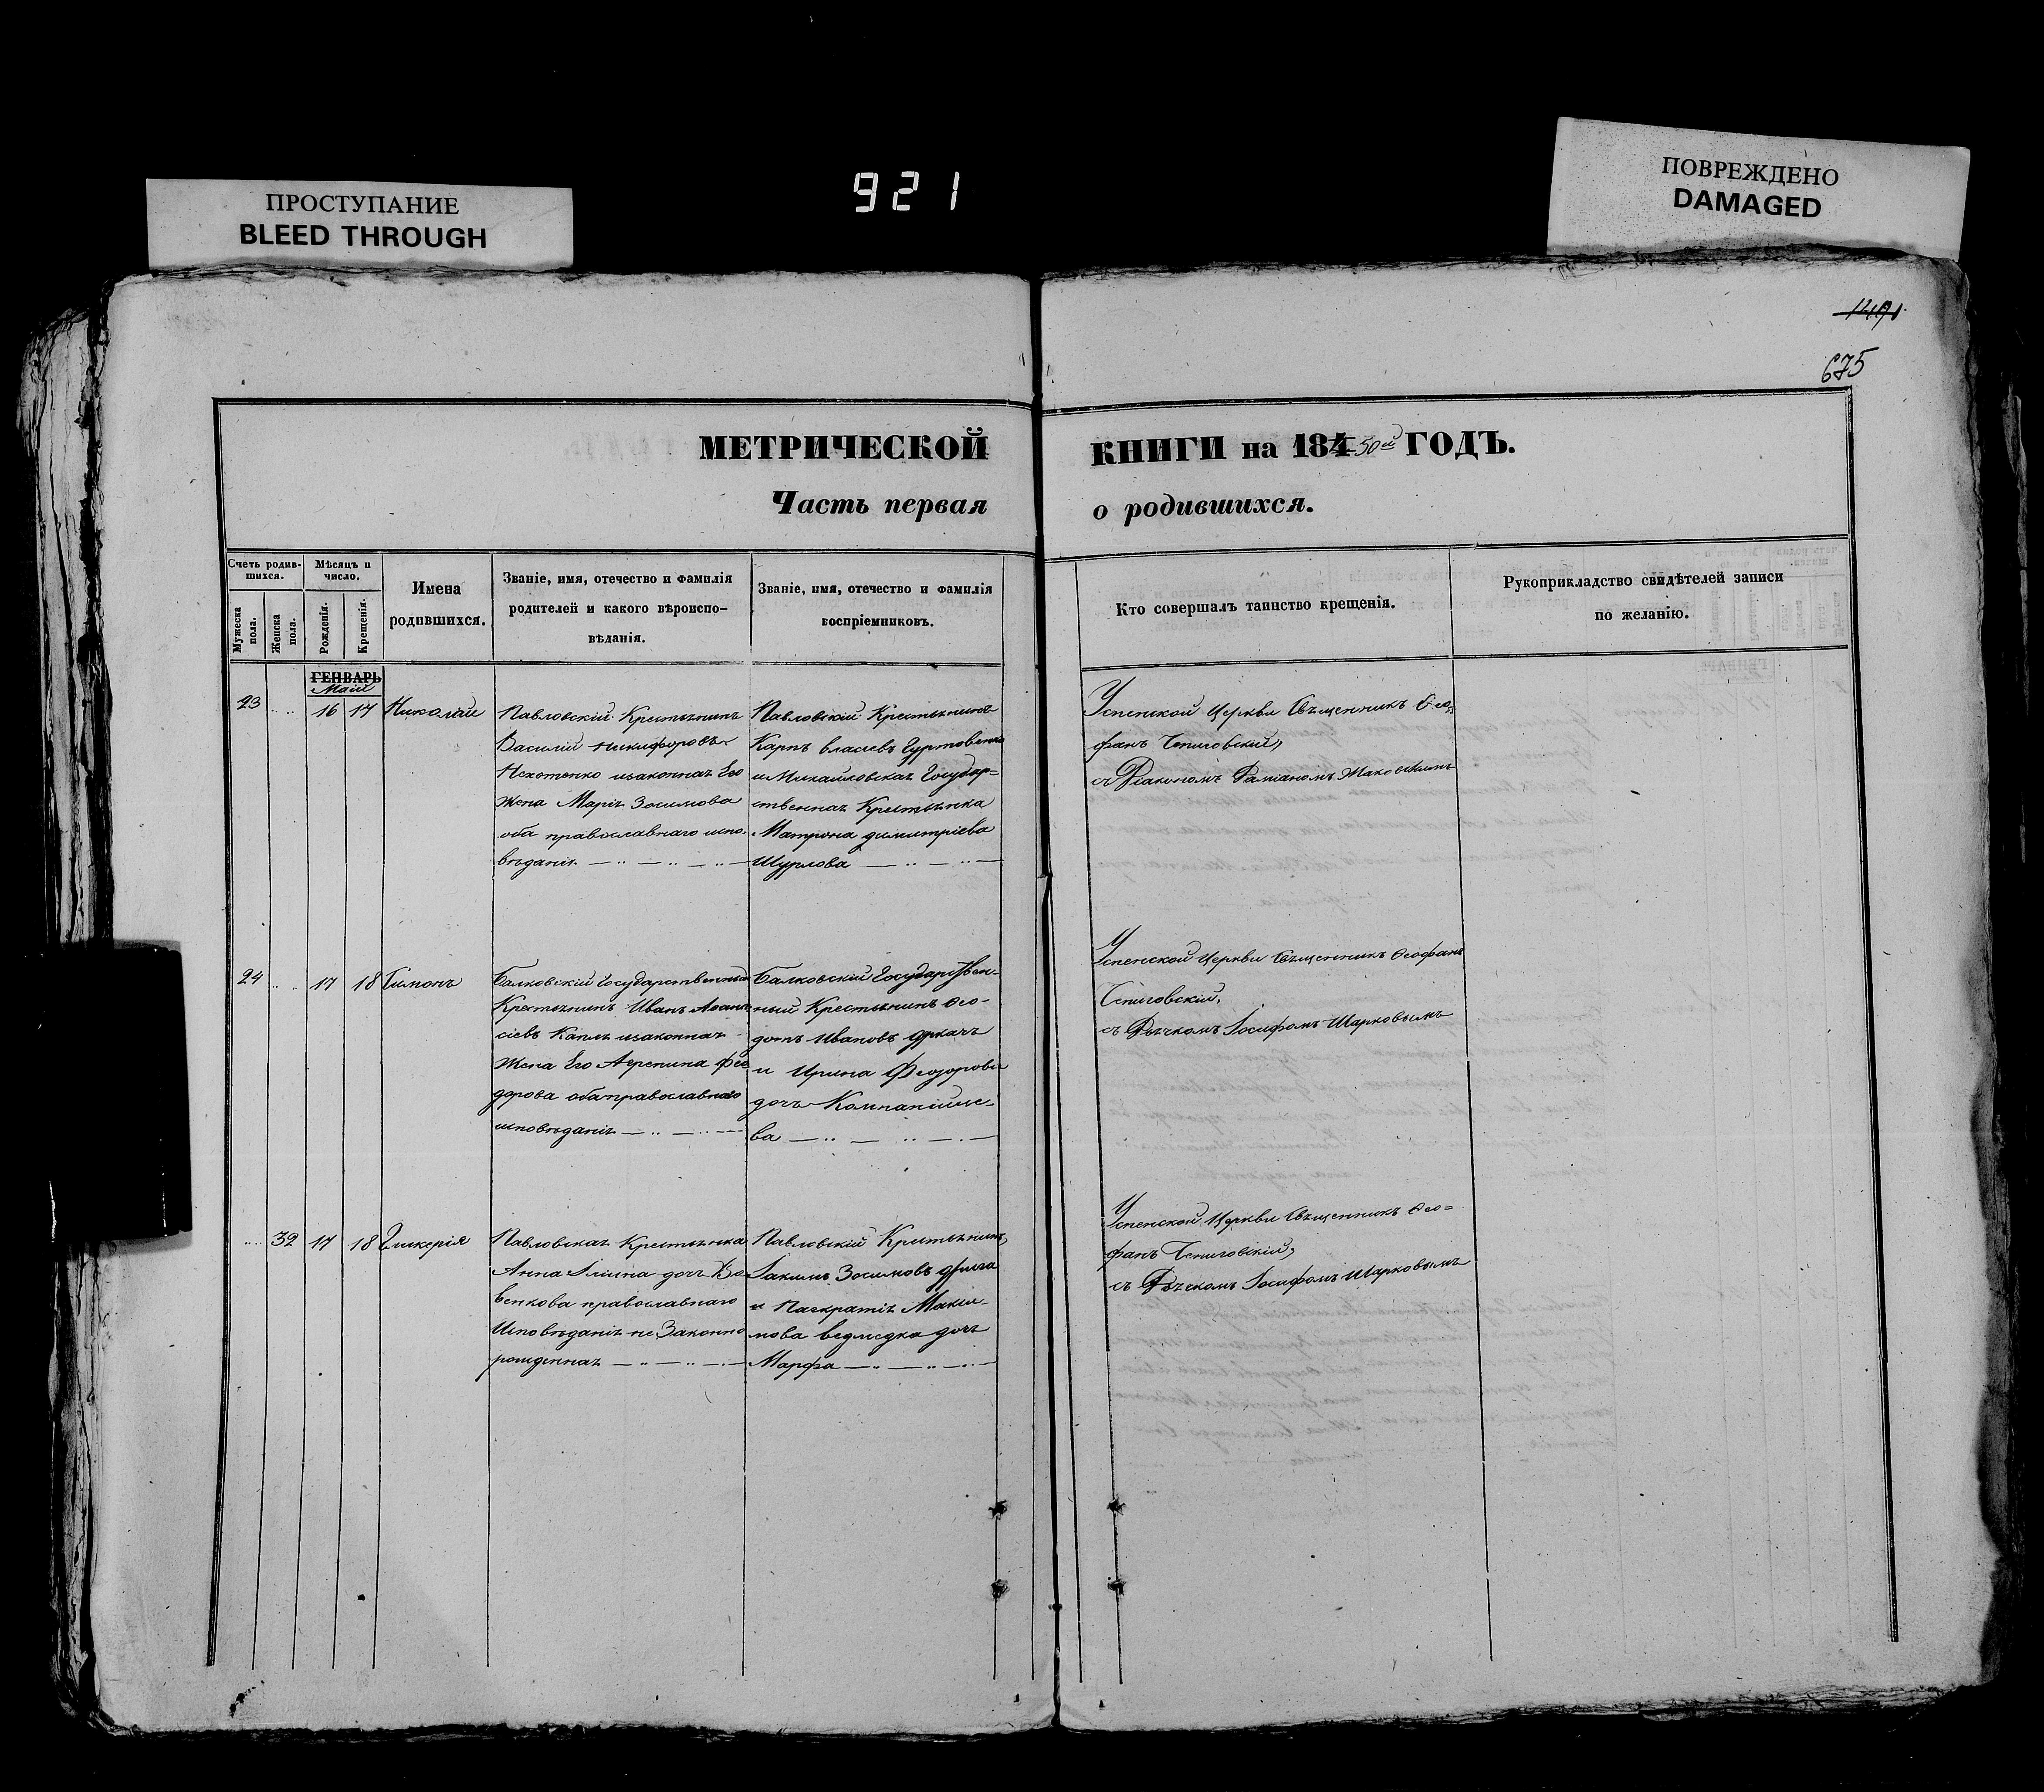 ПРОСТУПАНИЕ
BLEED THROUGH
921
ПОВРЕЖДЕНО
DAMAGED
675
МЕТРИЧЕСКОЙ КНИГИ на 184 50й ГОДЪ.
Часть первая о родившихся.
Счетъ родившихся.
Мужеска пола.
Женска пола.
Мѣсяцъ и число.
Рожденія.
Крещенія.
Имена родившихся.
Званіе, имя, отечество и фамилія
родителей и какого вѣроиспо-
вѣданія.
Званіе, имя, отечество и фамилія
воспріемниковъ.
Кто совершалъ таинство крещенія.
Рукоприкладство свидѣтелей записи
по желанію.
ГЕНВАРЬ
Маій
23 16 17 Николай
Павловскій Крестьянинъ
Василій Никифоровъ
Нехотенко изаконная Его
жена Марія Зосимова
оба православнаго испо-
вѣданія
Павловскій Крестьянинъ
Карпъ Власіевъ Гуртовенко
и Михайловская Государ=
ственная Крестьянка
Матрона Димитріева
Шурлова
Успенской Церкви Священникъ Ѳео-
фанъ
съ Діакономъ Даміаномъ Маковскимъ
24 17 18 Симонъ
Балковскій Государственный
Крестьянинъ Иванъ Аѳана
сіевъ изаконная
жена Его Агрепина Фео
дорова оба православнаго
исповѣданія
Балковскій Государствен-
ный Крестьянинъ Ѳео-
дотъ Ивановъ
и Ирина Феодорова
дочь Компанійце-
ва
Успенской Церкви Священникъ Ѳеофанъ
съ Дьячкомъ Іосифомъ Шарковымъ
32 17 18 Гликерія
Павловская Крестьянка
Анна Іліина дочь
православнаго
Исповѣданія не Законно
рожденная
Павловскій Крестьянинъ
Іакимъ Зосимовъ
и Панкратія Макси-
мова Ведмедка дочь
Марфа
Успенской Церкви Священникъ Ѳео=
фанъ
съ Дьячкомъ Іосифомъ Шарковымъ